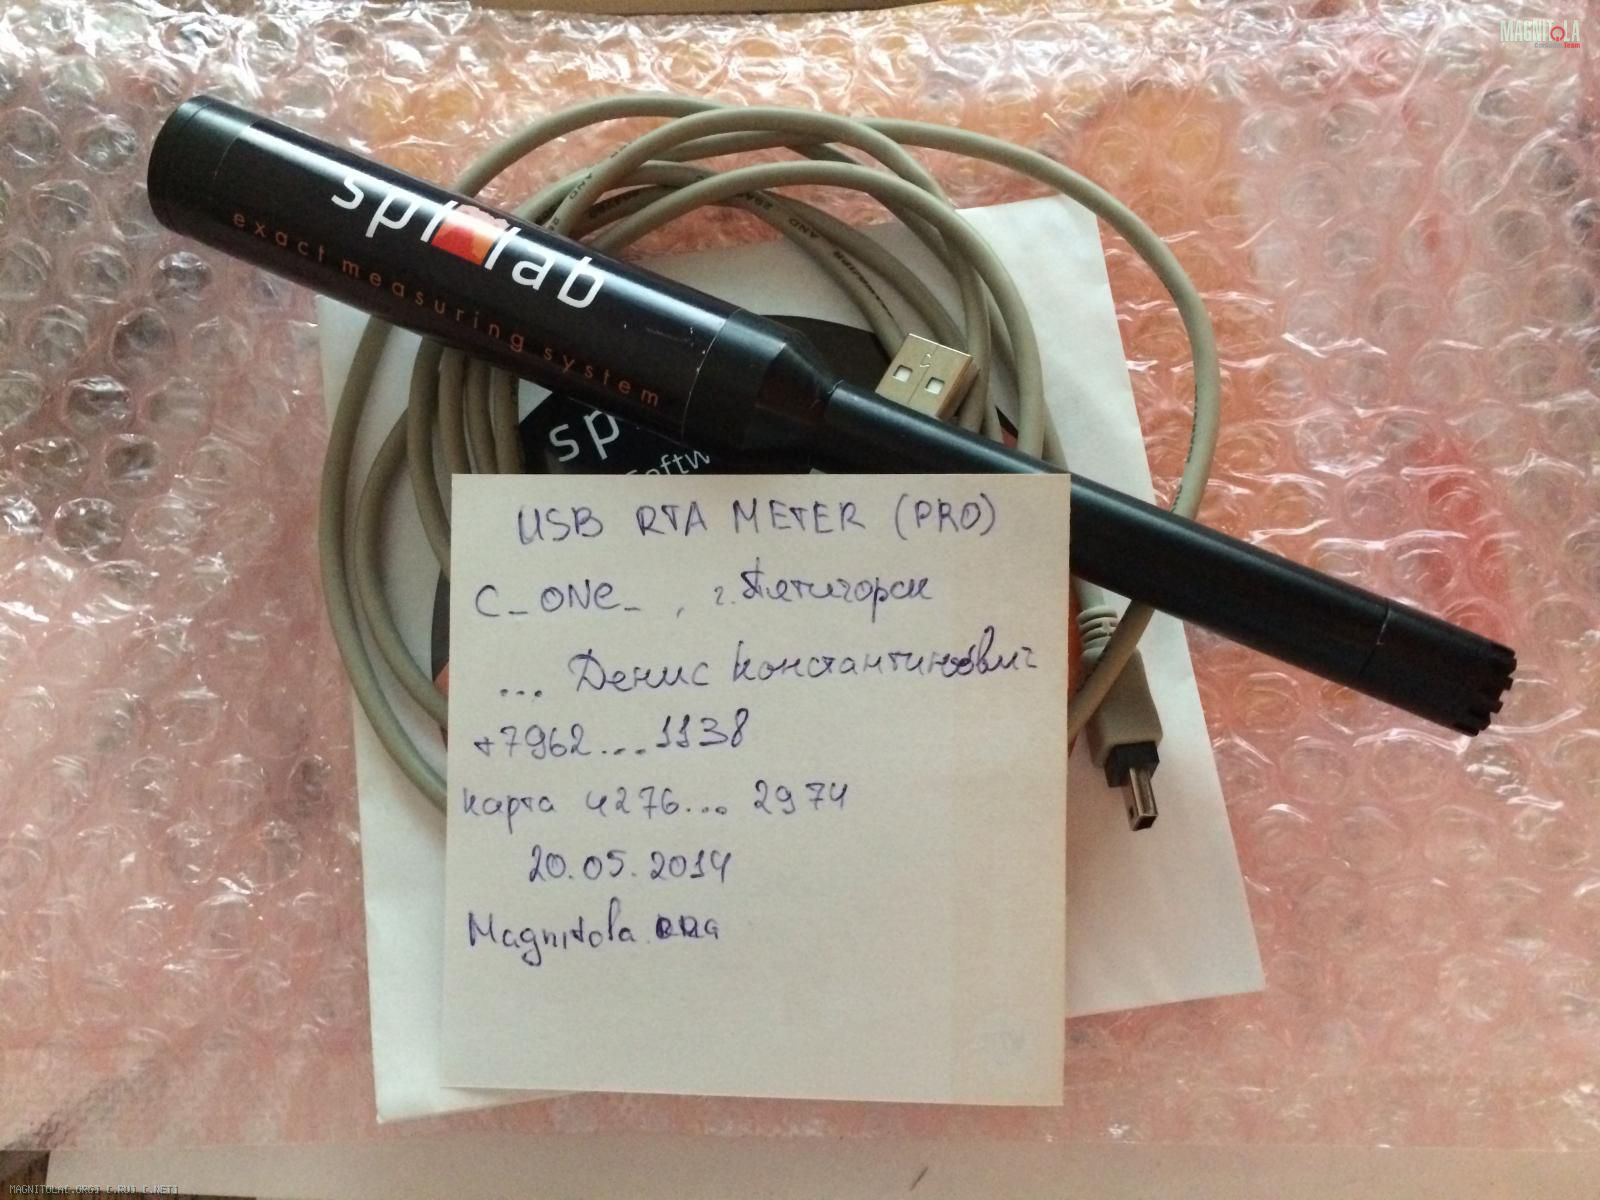 MAGNITOLA
CarAudio Team
spl lab
exact measuring system
sp
Softw
USB RTA METER (PRO)
C_ONe_, г. Пятигорск
... Денис Константинович
+7962...1138
карта 4276... 2974
20.05.2014
Magnitola.ORG
MAGNITOLA[.ORG] [.RU] [.NET]